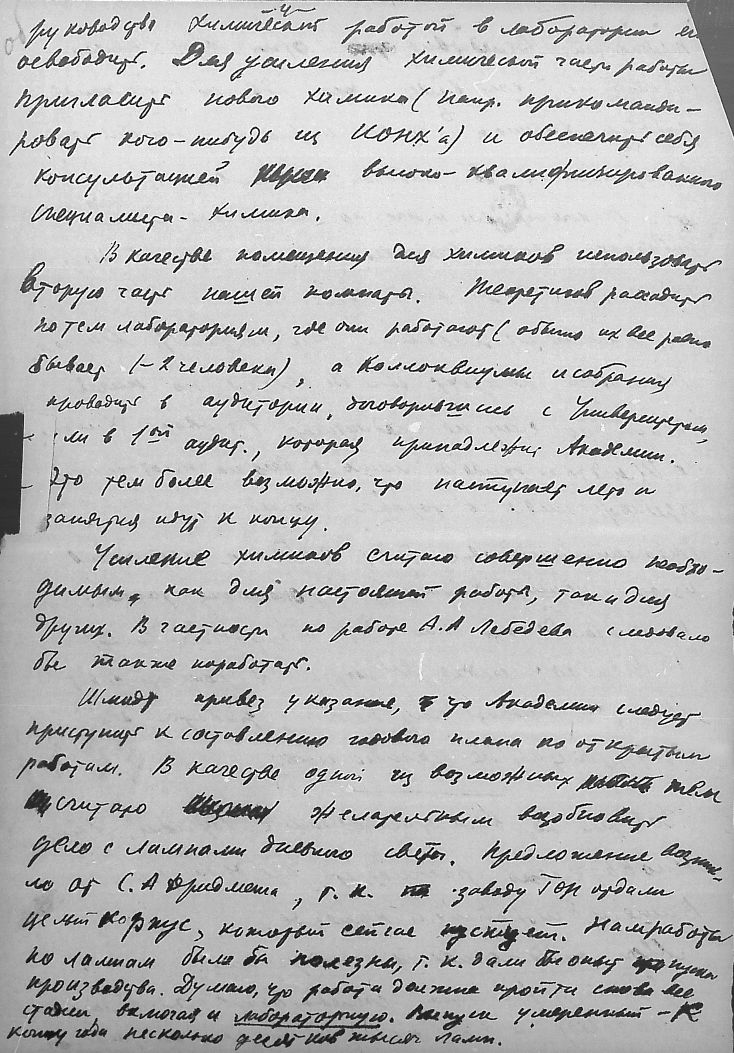 руководства химической работой в лаборатории его
освободить. Для усиления химической части работы
пригласить нового химика (напр. прикоманди-
ровать кого-нибудь из ИОНХ'а) и обеспечить себя
консультацией высоко-квалифицированного
специалиста-химика.
В качестве помещения для химиков использовать
вторую часть нашей комнаты. Теоретиков рассадить
по тем лабораториям, где они работают (обычно их все равно
бывает 1-2 человека), а коллоквиумы и собрания
проводить в аудитории, договорившись с Университетом,
или в 1ой аудит., которая принадлежит Академии.
Это тем более возможно, что наступает лето и
занятия идут к концу.
Усиление химиков считаю совершенно необхо-
димым, как для настоящей работы, так и для
других. В частности по работе А.А Лебедева следовало
бы также поработать.
Шмидт привез указание, что Академии следует
приступить к составлению годового плана по открытым
работам. В качестве одной из возможных тем
считаю желательным возобновить
дело с лампами дневного света. Предложение возник-
ло от С.А Фридмана, т.к. заводу ТОН отдали
целый корпус, который сейчас пустует. Нам работы
по лампам были бы полезны, т.к. дали бы опыт пуска
производства. Думаю, что работа должна пройти снова все
стадии, включая и лабораторную. Выпуск умеренный – к
концу года несколько десятков тысяч ламп.